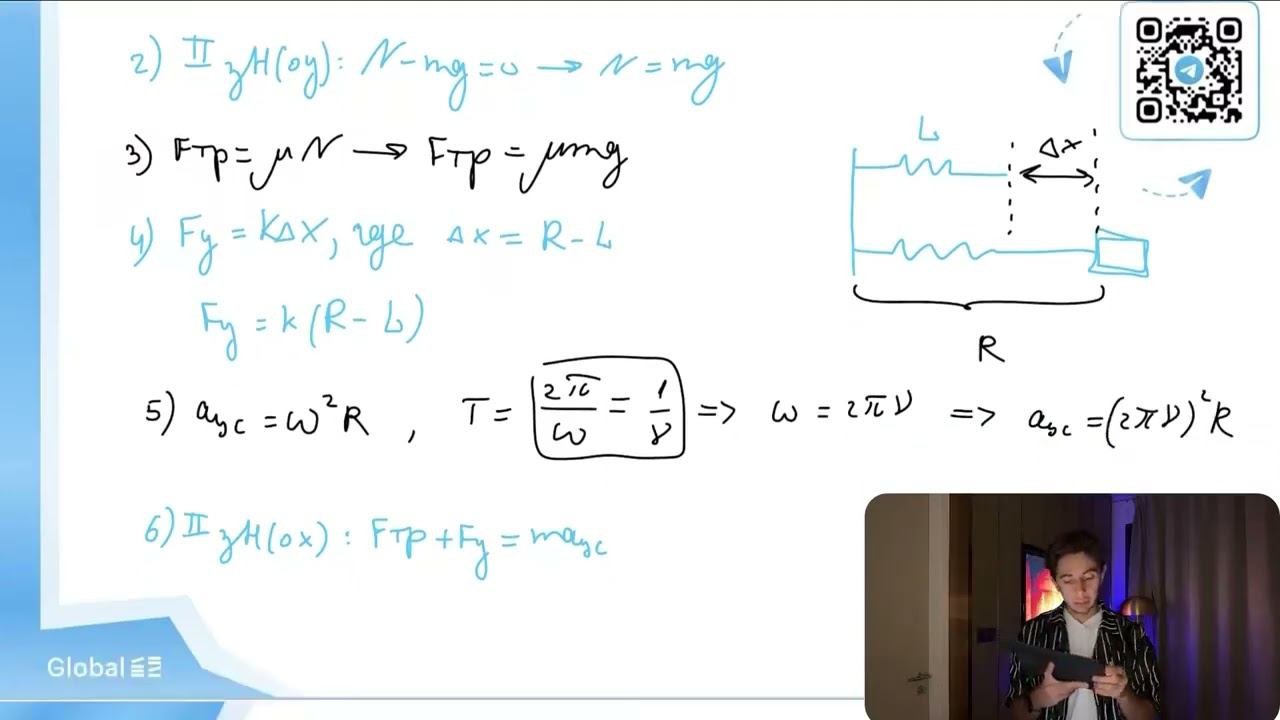 2) II зН(oy): N-mg=0 → N=mg
3) Fтр=μN → Fтр=μmg
4) Fу=kΔx, где Δx=R-L
Fу=k(R-L)
5) aцс=ω²R, T=2π/ω=1/ν => ω=2πν => aцс=(2πν)²R
6) II зН(ox): Fтр+Fу=maцс
L
Δx
R
Global EE